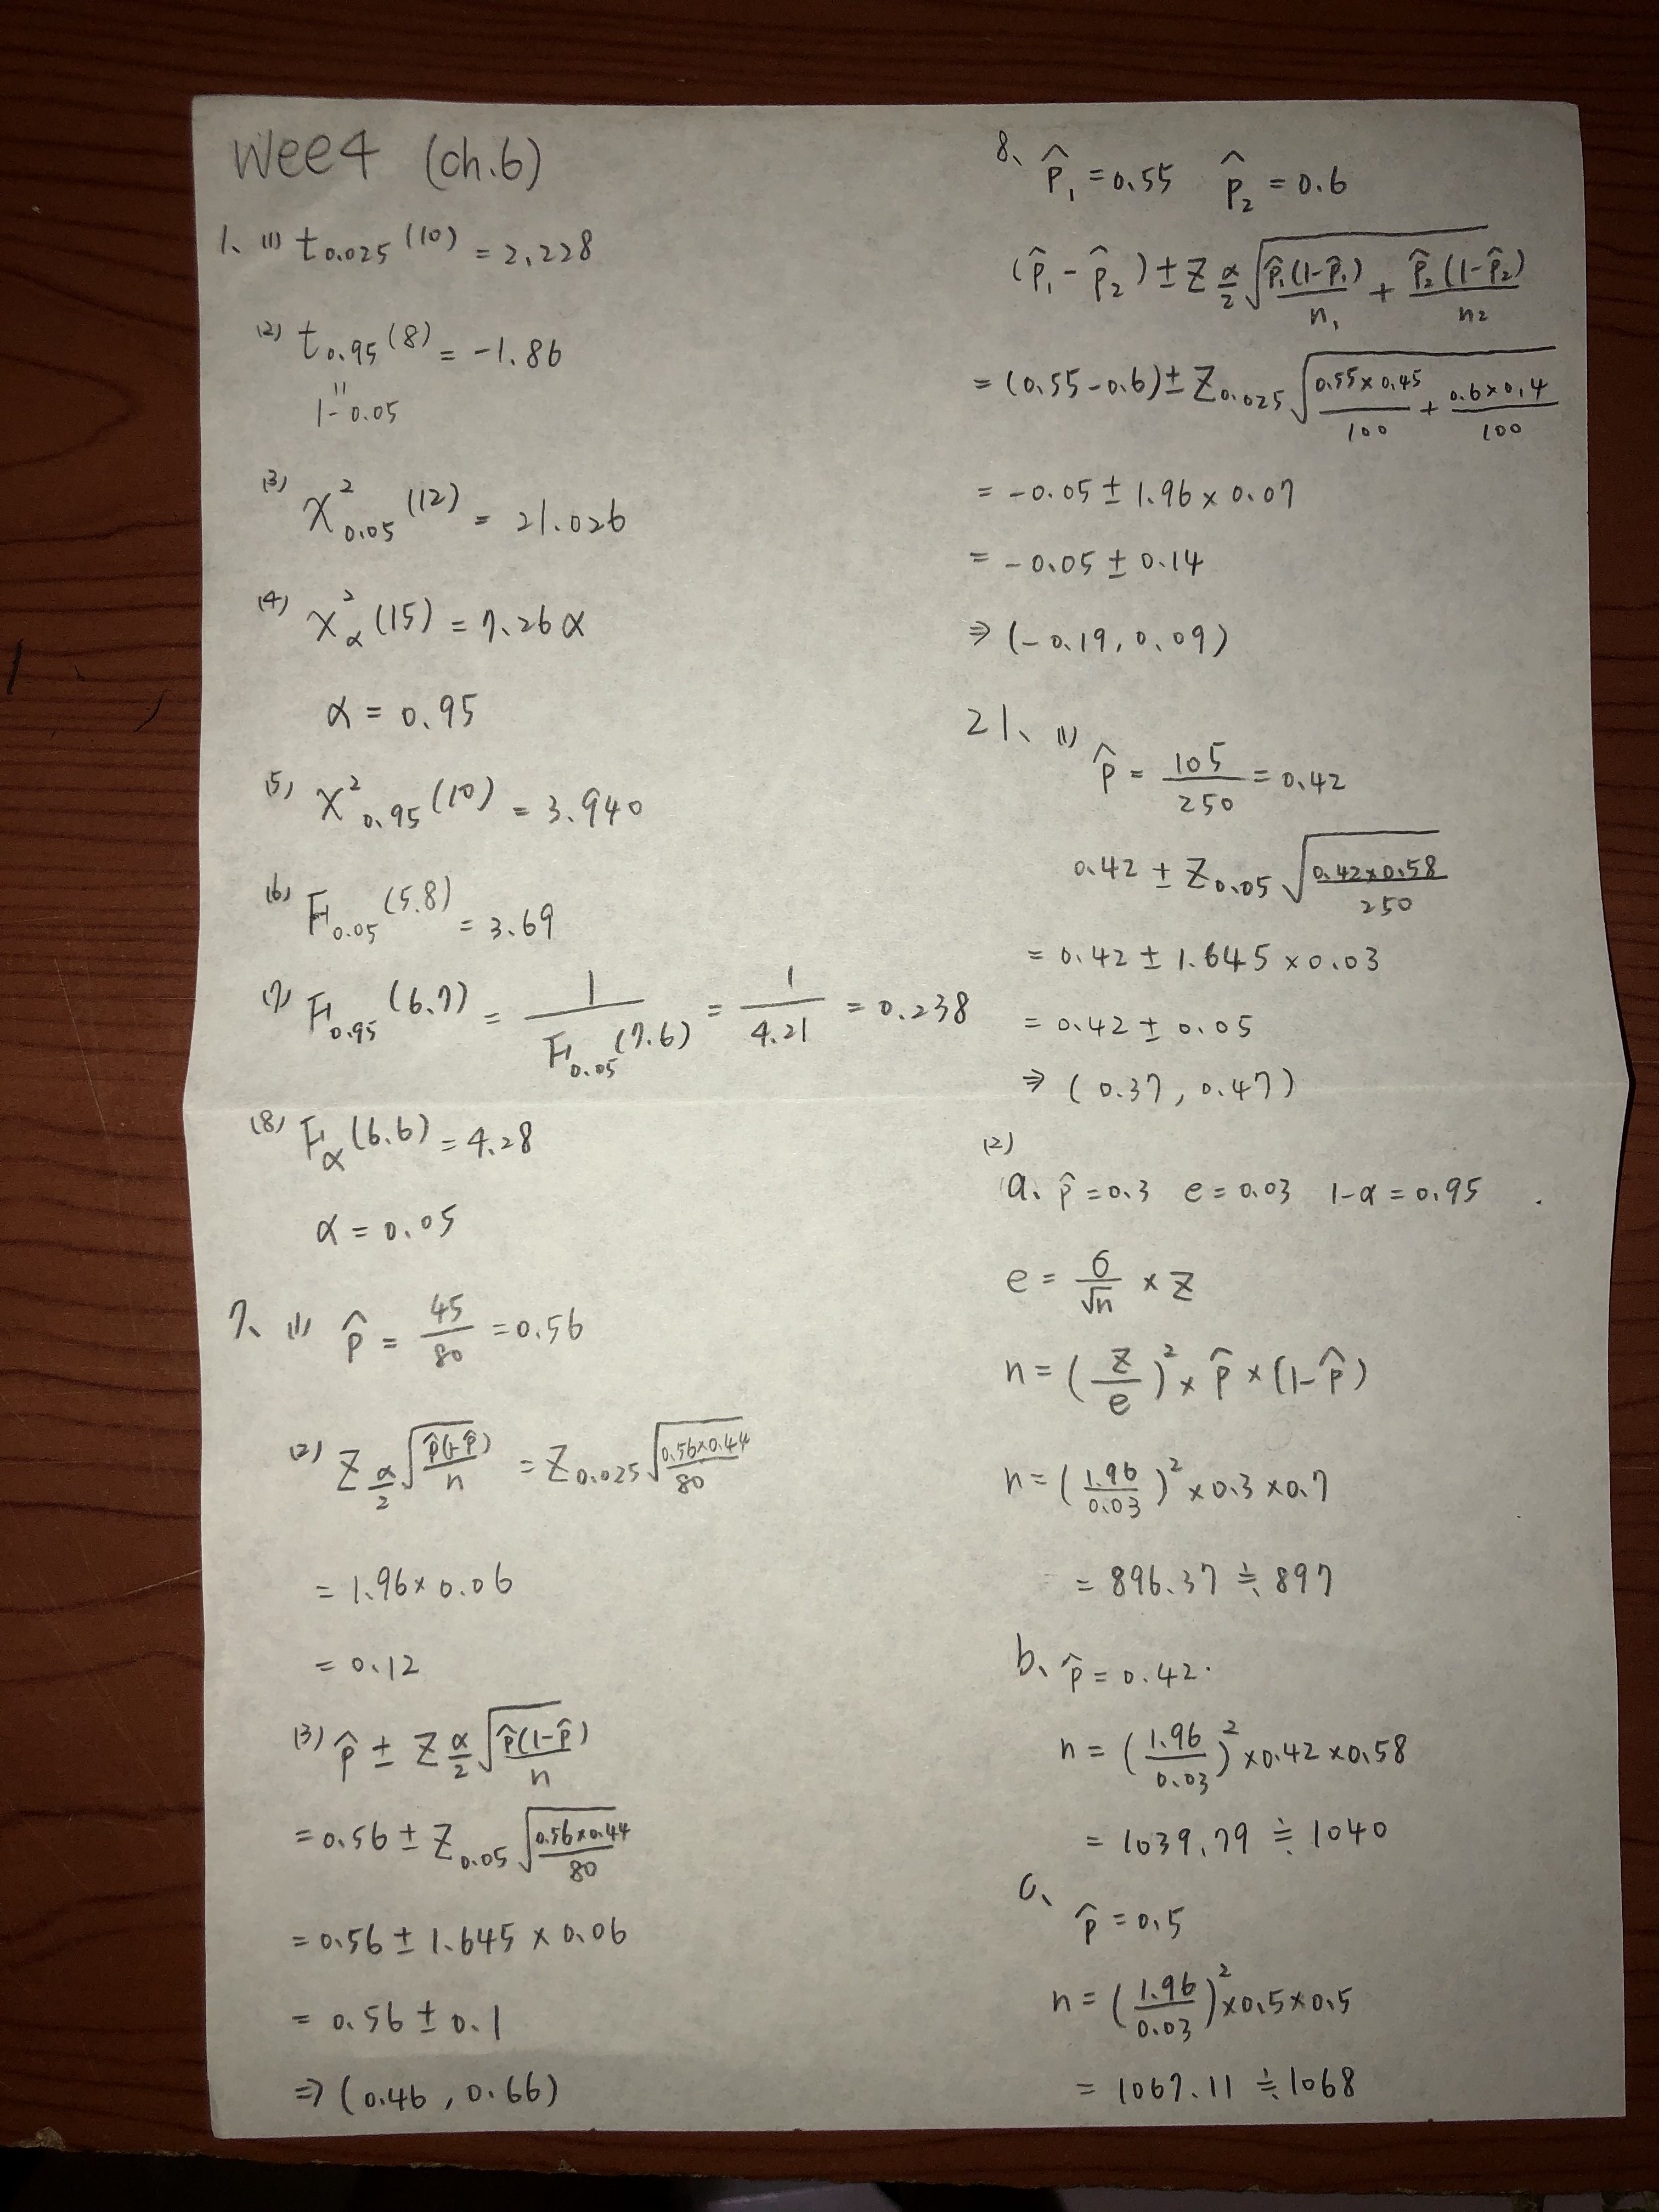 Week4 (ch.6)
1、(1) t0.025 (10) = 2.228
(2) t0.95 (8) = -1.86
"
1-0.05
(3) χ²0.05 (12) = 21.026
(4) χ²α (15) = 7.26α
α = 0.95
(5) χ²0.95 (10) = 3.940
(6) F0.05 (5.8) = 3.69
(7) F0.95 (6.7) = 1/F0.05 (7.6) = 1/4.21 = 0.238
(8) Fα (6.6) = 4.28
α = 0.05
7、(1) p̂ = 45/80 = 0.56
(2) Z α/2 √(p̂(1-p̂)/n) = Z0.025 √(0.56×0.44/80)
= 1.96 × 0.06
= 0.12
(3) p̂ ∓ Z α/2 √(p̂(1-p̂)/n)
= 0.56 ∓ Z0.05 √(0.56×0.44/80)
= 0.56 ∓ 1.645 × 0.06
= 0.56 ∓ 0.1
⇒ (0.46, 0.66)
8、p̂1 = 0.55 p̂2 = 0.6
(p̂1 - p̂2) ∓ Z α/2 √(p̂1(1-p̂1)/n1 + p̂2(1-p̂2)/n2)
= (0.55-0.6) ∓ Z0.025 √(0.55×0.45/100 + 0.6×0.4/100)
= -0.05 ∓ 1.96 × 0.07
= -0.05 ∓ 0.14
⇒ (-0.19, 0.09)
21、(1) p̂ = 105/250 = 0.42
0.42 ∓ Z0.05 √(0.42×0.58/250)
= 0.42 ∓ 1.645 × 0.03
= 0.42 ∓ 0.05
⇒ (0.37, 0.47)
(2)
a、p̂ = 0.3 e = 0.03 1-α = 0.95
e = σ/√n × Z
n = (Z/e)² × p̂ × (1-p̂)
n = (1.96/0.03)² × 0.3 × 0.7
= 896.37 ≒ 897
b、p̂ = 0.42.
n = (1.96/0.03)² × 0.42 × 0.58
= 1039.79 ≒ 1040
c、p̂ = 0.5
n = (1.96/0.03)² × 0.5 × 0.5
= 1067.11 ≒ 1068